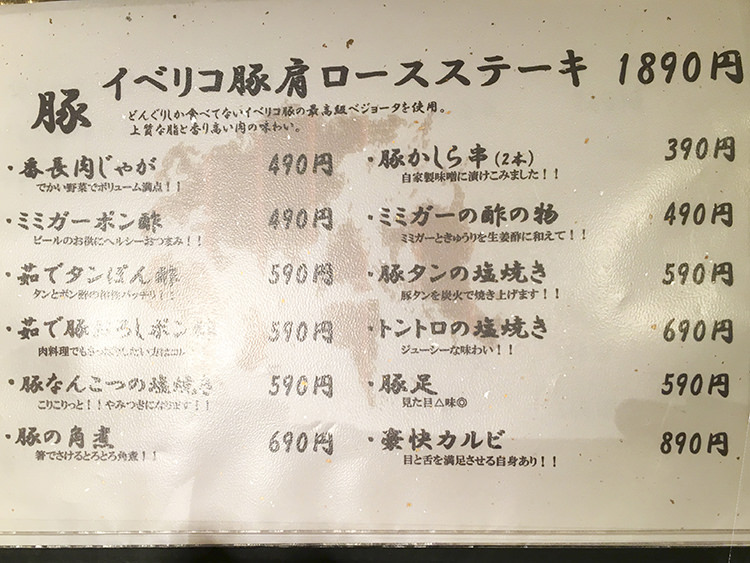 豚
イベリコ豚肩ロースステーキ 1890円
どんぐりしか食べてないイベリコ豚の最高級ベジョータを使用。
上質な脂と香り高い肉の味わい。
・番長肉じゃが 490円
でかい野菜でボリューム満点！！
・ミミガーポン酢 490円
ビールのお供にヘルシーおつまみ！！
・茹でタンぽん酢 590円
タンとポン酢の相性バッチリ！！
・茹で豚おろしポン酢 590円
肉料理でもさっぱりしたい方は
・豚なんこつの塩焼き 590円
こりこりっと！！やみつきになります！！
・豚の角煮 690円
箸でさけるとろとろ角煮！！
・豚かしら串(2本) 390円
自家製味噌に漬けこみました！！
・ミミガーの酢の物 490円
ミミガーときゅうりを生姜酢に和えて！！
・豚タンの塩焼き 590円
豚タンを炭火で焼き上げます！！
・トントロの塩焼き 690円
ジューシーな味わい！！
・豚足 590円
見た目△味◎
・豪快カルビ 890円
目と舌を満足させる自身あり！！